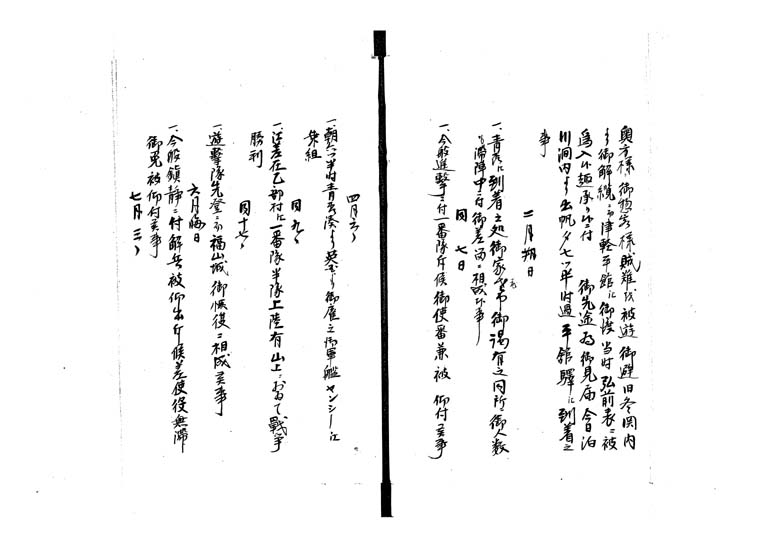 奥方様御惣客様賊難を被遊御避旧冬関内
より御解纜ニ而津軽平館に御渡当時弘前表ニ被
為入候趣承り候ニ付 御先途為御見届今日泊
川澗内より出帆夕七ツ半時過平館驛に到着之
事
二月朔日
一、青森に到着之処御家老
御人数
も滞陣中ニ付御差留ニ相成候事
同七日
一、今般進撃ニ付一番隊斥候御使番兼被 仰付候事
四月六日
一、朝六ツ半時青森湊より英國より御雇之御軍艦ヤンシーに
乗組
同九日
一、江差在乙部村に一番隊半隊上陸有山上ニおゐて戦争
勝利
同十七日
一、遊撃隊先登ニ而福山城御恢復ニ相成候事
六月晦日
一、今般鎮静ニ付解兵被仰出斥候差使役無滞
御免被仰付候事
七月三日